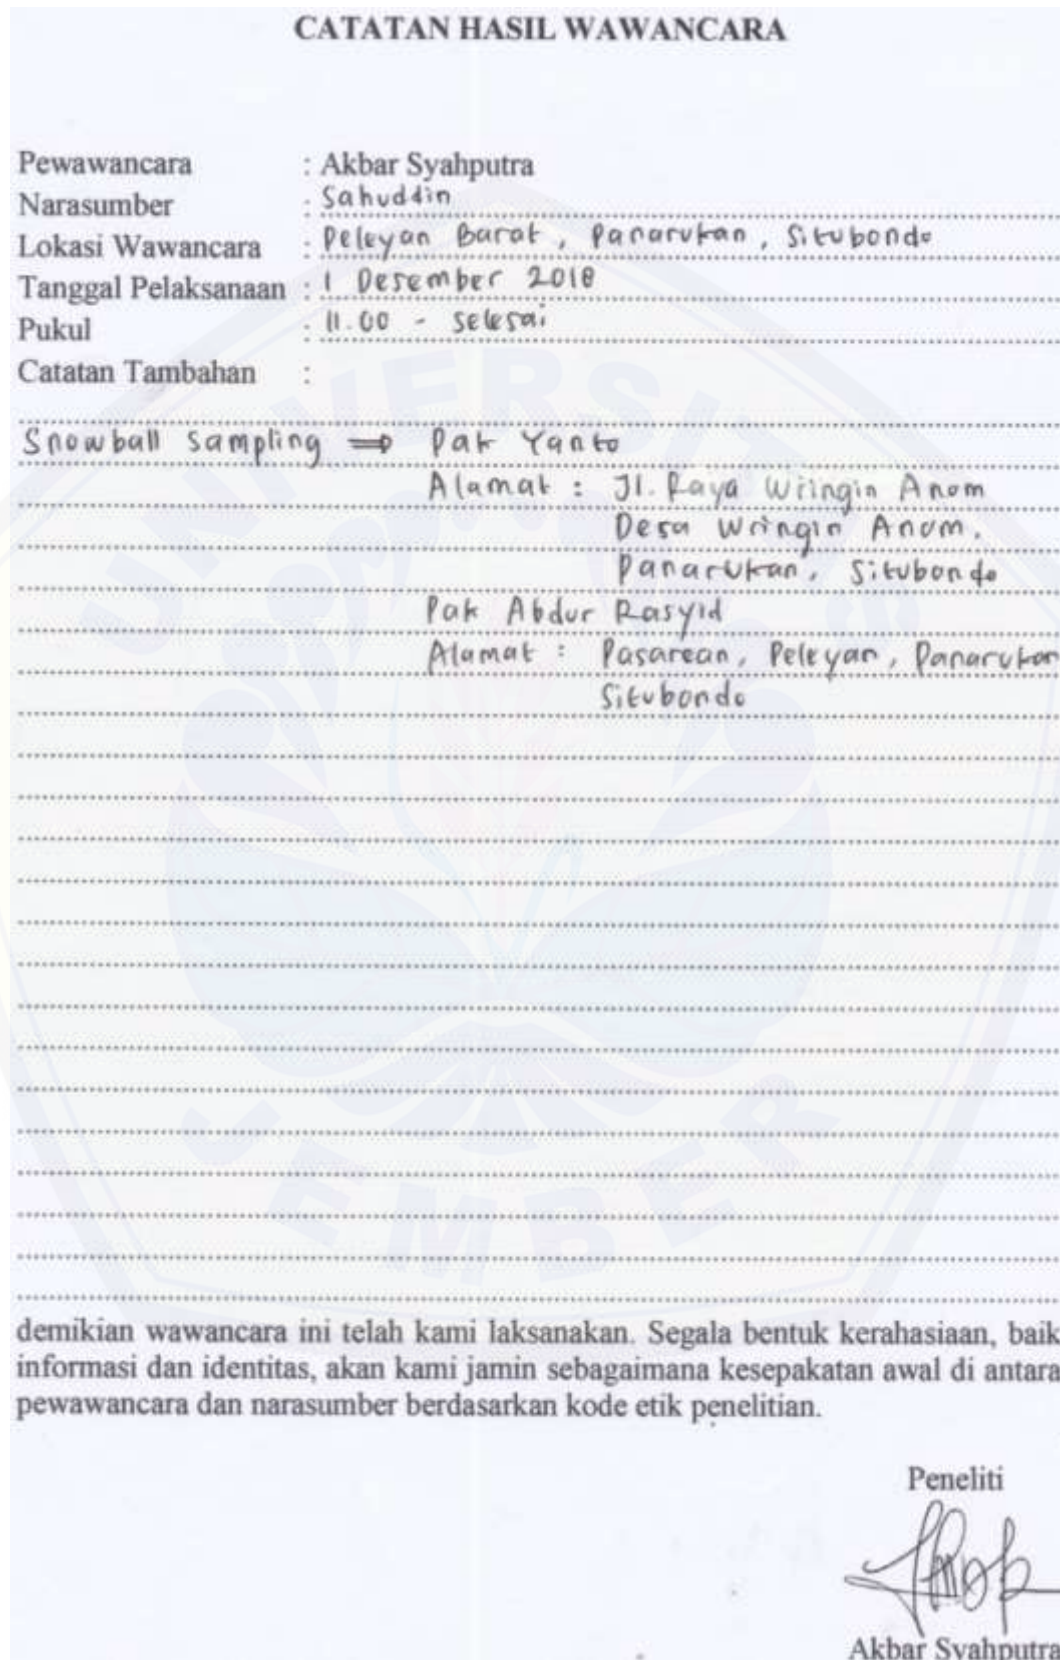 CATATAN HASIL WAWANCARA
Pewawancara : Akbar Syahputra
Narasumber : Sahuddin
Lokasi Wawancara : Peleyan Barat, Panarukan, Situbondo
Tanggal Pelaksanaan : 1 Desember 2018
Pukul : 11.00 - selesai
Catatan Tambahan :
Snowball Sampling ⇒ Pak Yanto
Alamat : Jl. Raya Wringin Anom
Desa Wringin Anom,
Panarukan, Situbondo
Pak Abdur Rasyid
Alamat : Pasarean, Peleyan, Panarukan
Situbondo
demikian wawancara ini telah kami laksanakan. Segala bentuk kerahasiaan, baik
informasi dan identitas, akan kami jamin sebagaimana kesepakatan awal di antara
pewawancara dan narasumber berdasarkan kode etik penelitian.
Peneliti
Akbar Syahputra
UNIVERSITAS JEMBER